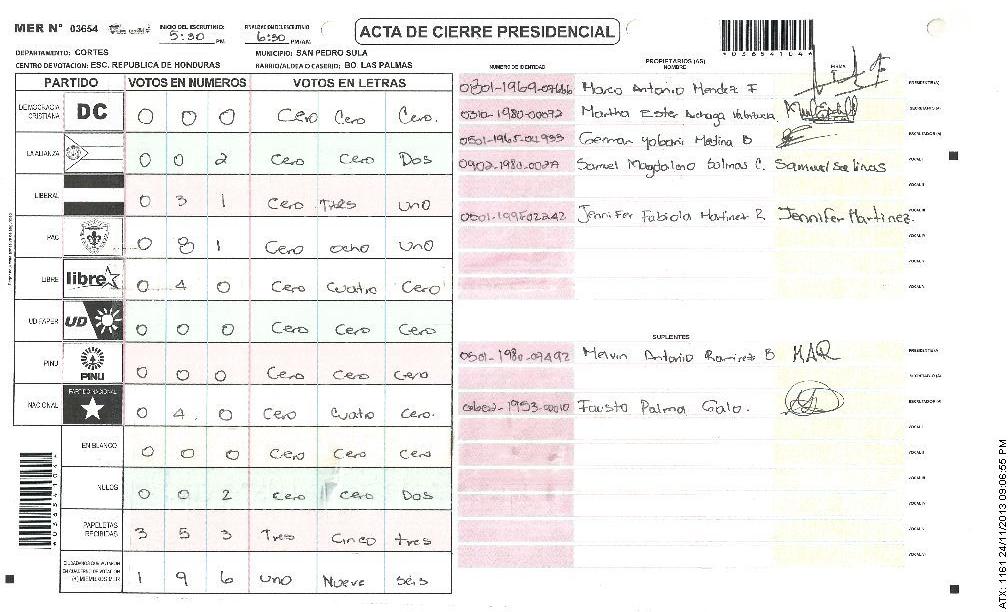 MER N° 03654 INICIO DEL ESCRUTINIO: 5:30 PM FINALIZACION DEL ESCRUTINIO: 6:30 PM/AM ACTA DE CIERRE PRESIDENCIAL
DEPARTAMENTO: CORTES MUNICIPIO: SAN PEDRO SULA
CENTRO DE VOTACION: ESC. REPUBLICA DE HONDURAS BARRIO/ALDEA O CASERIO: BO. LAS PALMAS
PARTIDO VOTOS EN NUMEROS VOTOS EN LETRAS
DEMOCRACIA CRISTIANA DC 0 0 0 Cero Cero Cero.
LA ALIANZA 0 0 2 Cero Cero Dos
LIBERAL 0 3 1 Cero Tres uno
PAC 0 8 1 Cero ocho uno
LIBRE libre 0 4 0 Cero Cuatro Cero
UD FAPER UD 0 0 0 Cero Cero Cero
PINU PINU 0 0 0 Cero Cero Cero
NACIONAL PARTIDO NACIONAL 0 4 0 Cero Cuatro Cero.
EN BLANCO 0 0 0 Cero Cero Cero
NULOS 0 0 2 Cero Cero Dos
PAPELETAS RECIBIDAS 3 5 3 Tres Cinco tres
CIUDADANOS QUE VOTARON EN CUADERNO DE VOTACION (+) MIEMBROS MER 1 9 6 uno Nueve séis
*036541044
PROPIETARIOS (AS)
NUMERO DE IDENTIDAD NOMBRE FIRMA
Marco Antonio Mendez F PRESIDENTE(A)
0310-1980-00092 Martha Ester Valencia SECRETARIO (A)
German Yobani Medina B ESCRUTADOR (A)
Samuel Magdaleno Salinas C. Samuel Salinas VOCAL I
VOCAL II
Jennifer Fabiola Martinez Jennifer Martinez. VOCAL III
VOCAL IV
VOCAL V
VOCAL VI
SUPLENTES
0501-1980-09492 Melvin Antonio Ramirez B MAR PRESIDENTE(A)
SECRETARIO (A)
Fausto Palma Galo. ESCRUTADOR (A)
VOCAL I
VOCAL II
VOCAL III
VOCAL IV
VOCAL V
VOCAL VI
ATX: 1161 24/11/2013 09:06:55 PM